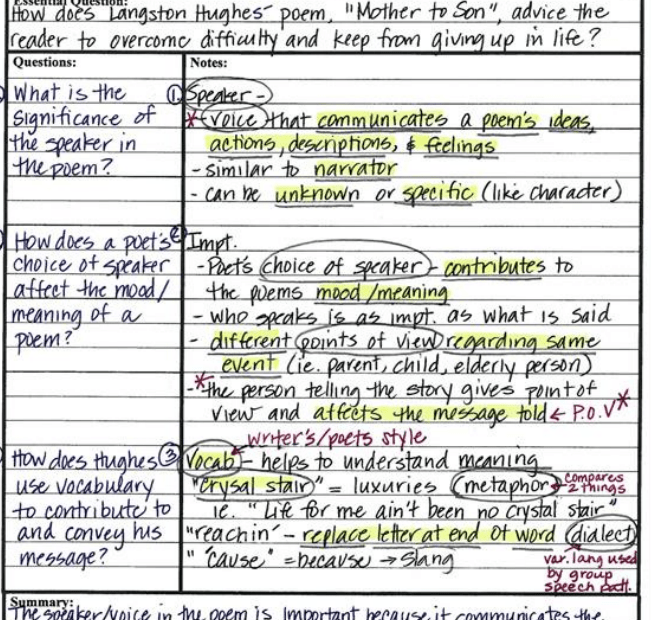 Essential Question:
How does Langston Hughes' poem, "Mother to Son", advice the
reader to overcome difficulty and keep from giving up in life?
Questions:
Notes:
What is the
significance of
the speaker in
the poem?
① Speaker -
* (voice) that communicates a poem's ideas,
actions, descriptions, & feelings
- similar to narrator
- can be unknown or specific (like character)
How does a poet's
choice of speaker
affect the mood/
meaning of a
poem?
② Impt.
- Poet's choice of speaker - contributes to
the poems mood/meaning
- who speaks is as impt. as what is said
- different points of view regarding same
event (ie. parent, child, elderly person)
- *the person telling the story gives point of
view and affects the message told ← P.O.V*
writer's/poets style
How does Hughes
use vocabulary
to contribute to
and convey his
message?
③ Vocab - helps to understand meaning
"crysal stair" = luxuries (metaphor) compares
2 things
ie. "Life for me ain't been no crystal stair"
"reachin' - replace letter at end of word (dialect)
" 'cause" = because → slang
var. lang used
by group
speech patt.
Summary:
The speaker/voice in the poem is important because it communicates the